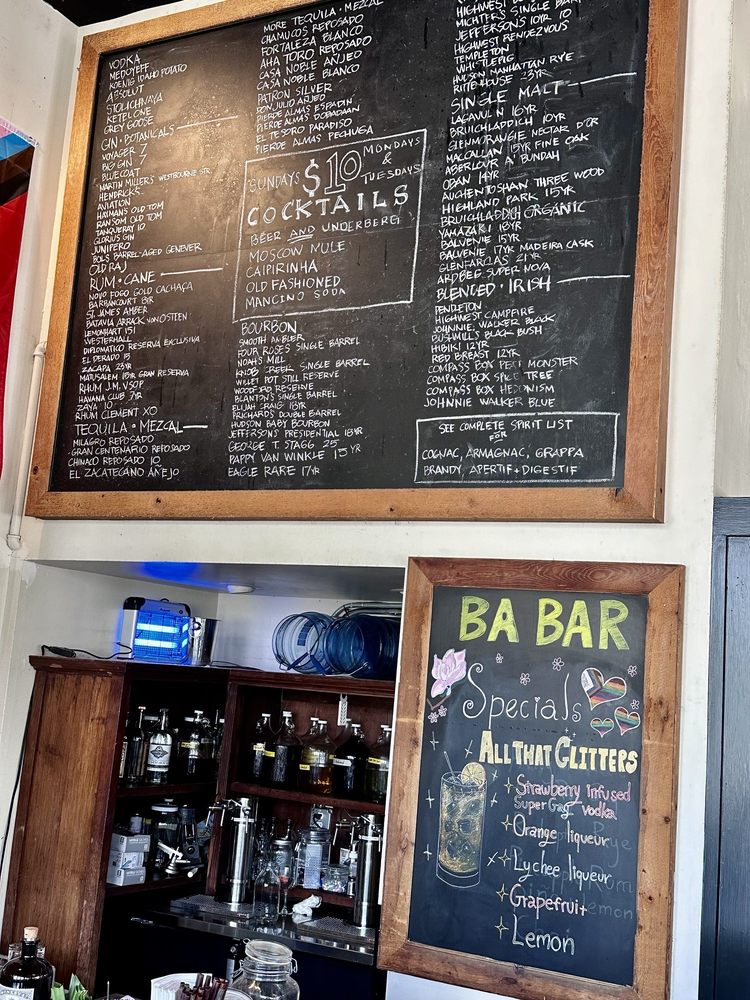 VODKA
MEDOYEFF
KOENIG IDAHO POTATO
ABSOLUT
STOLICHNAYA
KETEL ONE
GREY GOOSE
GIN · BOTANICALS
VOYAGER 7
BIG GIN 7
BLUECOAT
MARTIN MILLER'S WESTBOURNE STR.
HENDRICKS
AVIATION
HAYMANS OLD TOM
RANSOM OLD TOM
TANQUERAY 10
GLORIUS GIN
JUNIPERO
BOLS BARREL-AGED GENEVER
OLD RAJ
RUM · CANE
NOVO FOGO GOLD CACHAÇA
BARBANCOURT 8YR
ST. JAMES AMBER
BATAVIA ARRACK VON OSTEN
LEMONHART 151
WESTERHALL
DIPLOMATICO RESERVA EXCLUSIVA
EL DORADO 15
ZACAPA 23YR
MATUSALEM 18YR GRAN RESERVA
RHUM J.M. VSOP
HAVANA CLUB 7YR
ZAYA 10
RHUM CLEMENT XO
TEQUILA · MEZCAL
MILAGRO REPOSADO
GRAN CENTENARIO REPOSADO
CHINACO REPOSADO 10
EL ZACATECANO AÑEJO
MORE TEQUILA · MEZCAL
CHAMUCOS REPOSADO
FORTALEZA BLANCO
AHA TORO REPOSADO
CASA NOBLE AÑJEO
CASA NOBLE BLANCO
PATRON SILVER
DON JULIO AÑJEO
PIERDE ALMAS ESPADIN
PIERDE ALMAS DOBADAAN
EL TESORO PARADISO
PIERDE ALMAS PECHUGA
SUNDAYS $10 MONDAYS
&
TUESDAYS
COCKTAILS
BEER AND UNDERBERG
MOSCOW MULE
CAIPIRINHA
OLD FASHIONED
MANCINO SODA
BOURBON
SMOOTH AMBLER
FOUR ROSES SINGLE BARREL
NOAH'S MILL
KNOB CREEK SINGLE BARREL
WILLET POT STILL RESERVE
WOODFORD RESERVE
BLANTON'S SINGLE BARREL
ELIJAH CRAIG 18YR
PRICHARD'S DOUBLE BARREL
HUDSON BABY BOURBON
JEFFERSON'S PRESIDENTIAL 18YR
GEORGE T. STAGG 25
PAPPY VAN WINKLE 15 YR
EAGLE RARE 17YR
MICHTER'S SINGLE BAR
JEFFERSON'S 10YR 10
HIGHWEST RENDEZVOUS
TEMPLETON
WHISTLEPIG
HUDSON MANHATTAN RYE
RITTENHOUSE 23YR
SINGLE MALT
LAGAVULIN 16YR
BRUICHLADDICH 10YR
GLENMORANGIE NECTAR D'OR
MACCALLAN 15YR FINE OAK
ABERLOUR A' BUNDAH
OBAN 14YR
AUCHENTOSHAN THREE WOOD
HIGHLAND PARK 15YR
BRUICHLADDICH ORGANIC
YAMAZAKI 18YR
BALVENIE 15YR
BALVENIE 17YR MADEIRA CASK
GLENFARCLAS 21YR
ARDBEG SUPER NOVA
BLENDED · IRISH
PENDLETON
HIGHWEST CAMPFIRE
JOHNNIE WALKER BLACK
BUSHMILLS BLACK BUSH
HIBIKI 12YR
RED BREAST 12YR
COMPASS BOX PEAT MONSTER
COMPASS BOX SPICE TREE
COMPASS BOX HEDONISM
JOHNNIE WALKER BLUE
SEE COMPLETE SPIRIT LIST
FOR
COGNAC, ARMAGNAC, GRAPPA
BRANDY, APERTIF + DIGESTIF
BA BAR
Specials
ALL THAT GLITTERS
Strawberry infused
Super Gay vodka
Orange liqueur
Lychee liqueur
Grapefruit
Lemon